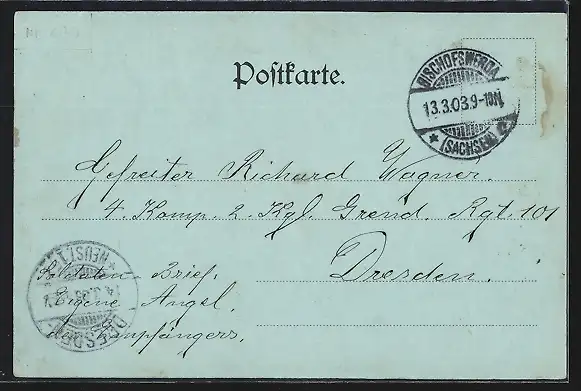 Postkarte.
BISCHOFSWERDA
13.3.03.9-10N.
* (SACHSEN) *
Gefreiter Richard Wagner.
4. Komp. 2. Kgl. Grend. Rgt. 101
Dresden.
Soldaten Brief.
Eigene Angel.
des Empfängers.
DRESDEN-
NEUST. 1